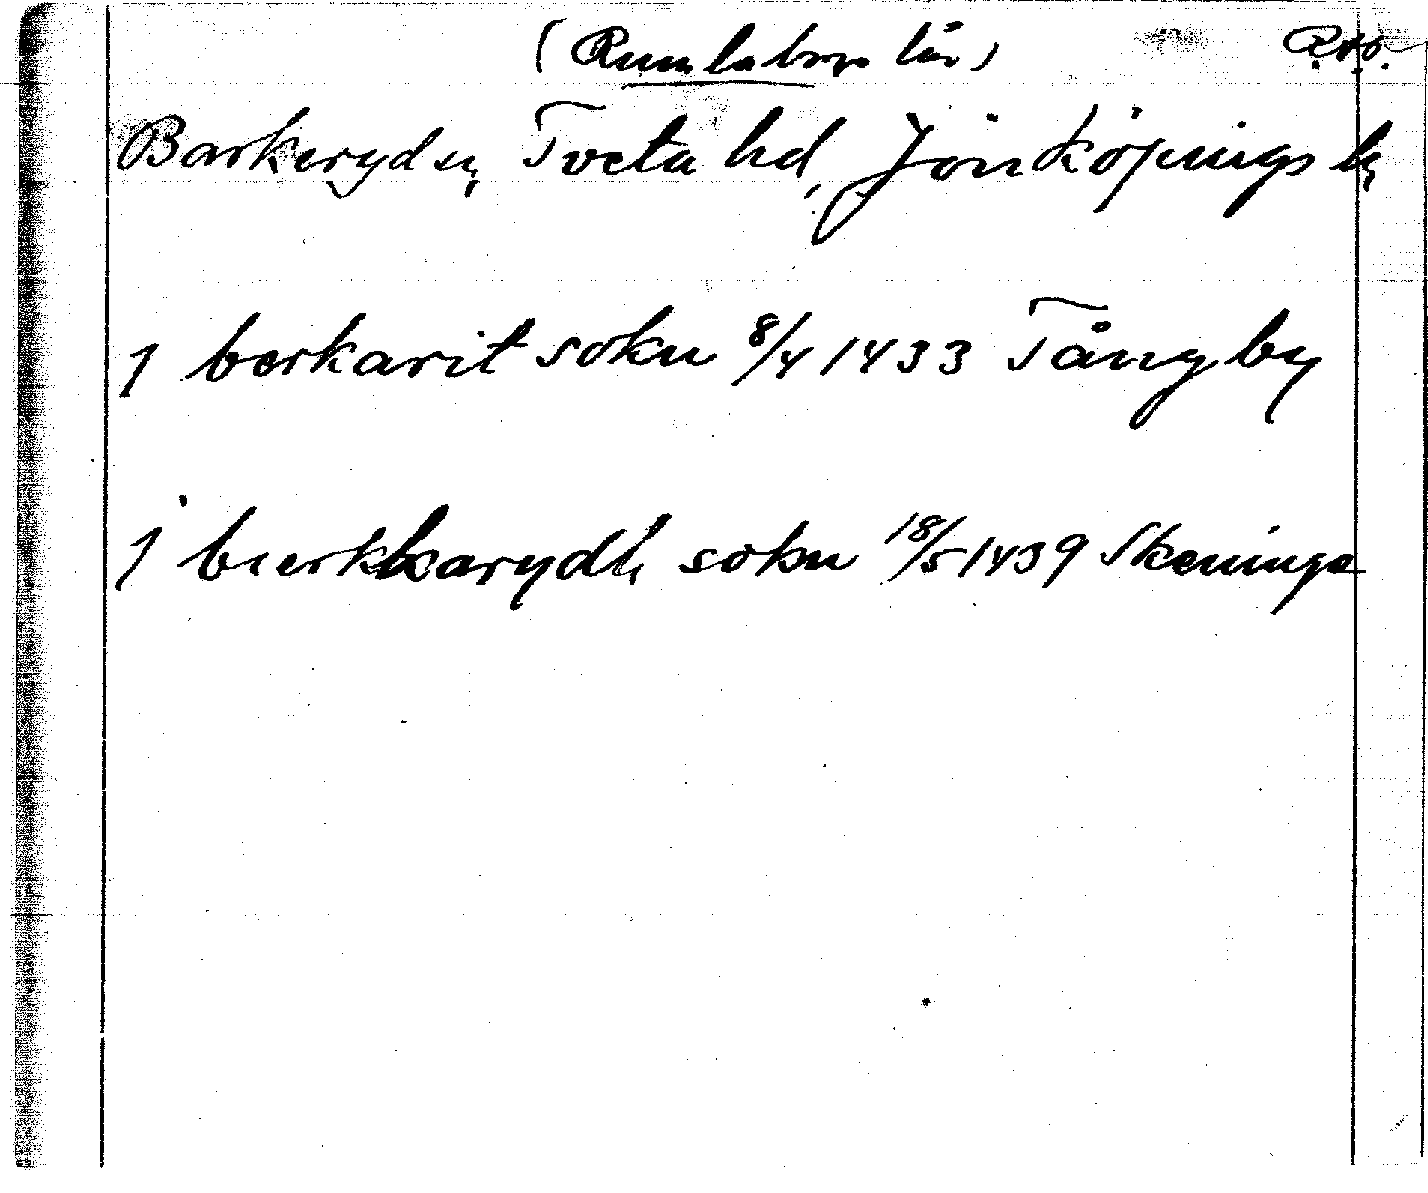 (Rumlaborgs län) R.A.P.
Barkeryd sn, Tveta hd, Jönköpings l.
j berkarit sokn 8/4 1433 Tångby
j bierkkarydh sokn 18/5 1439 Skeninge